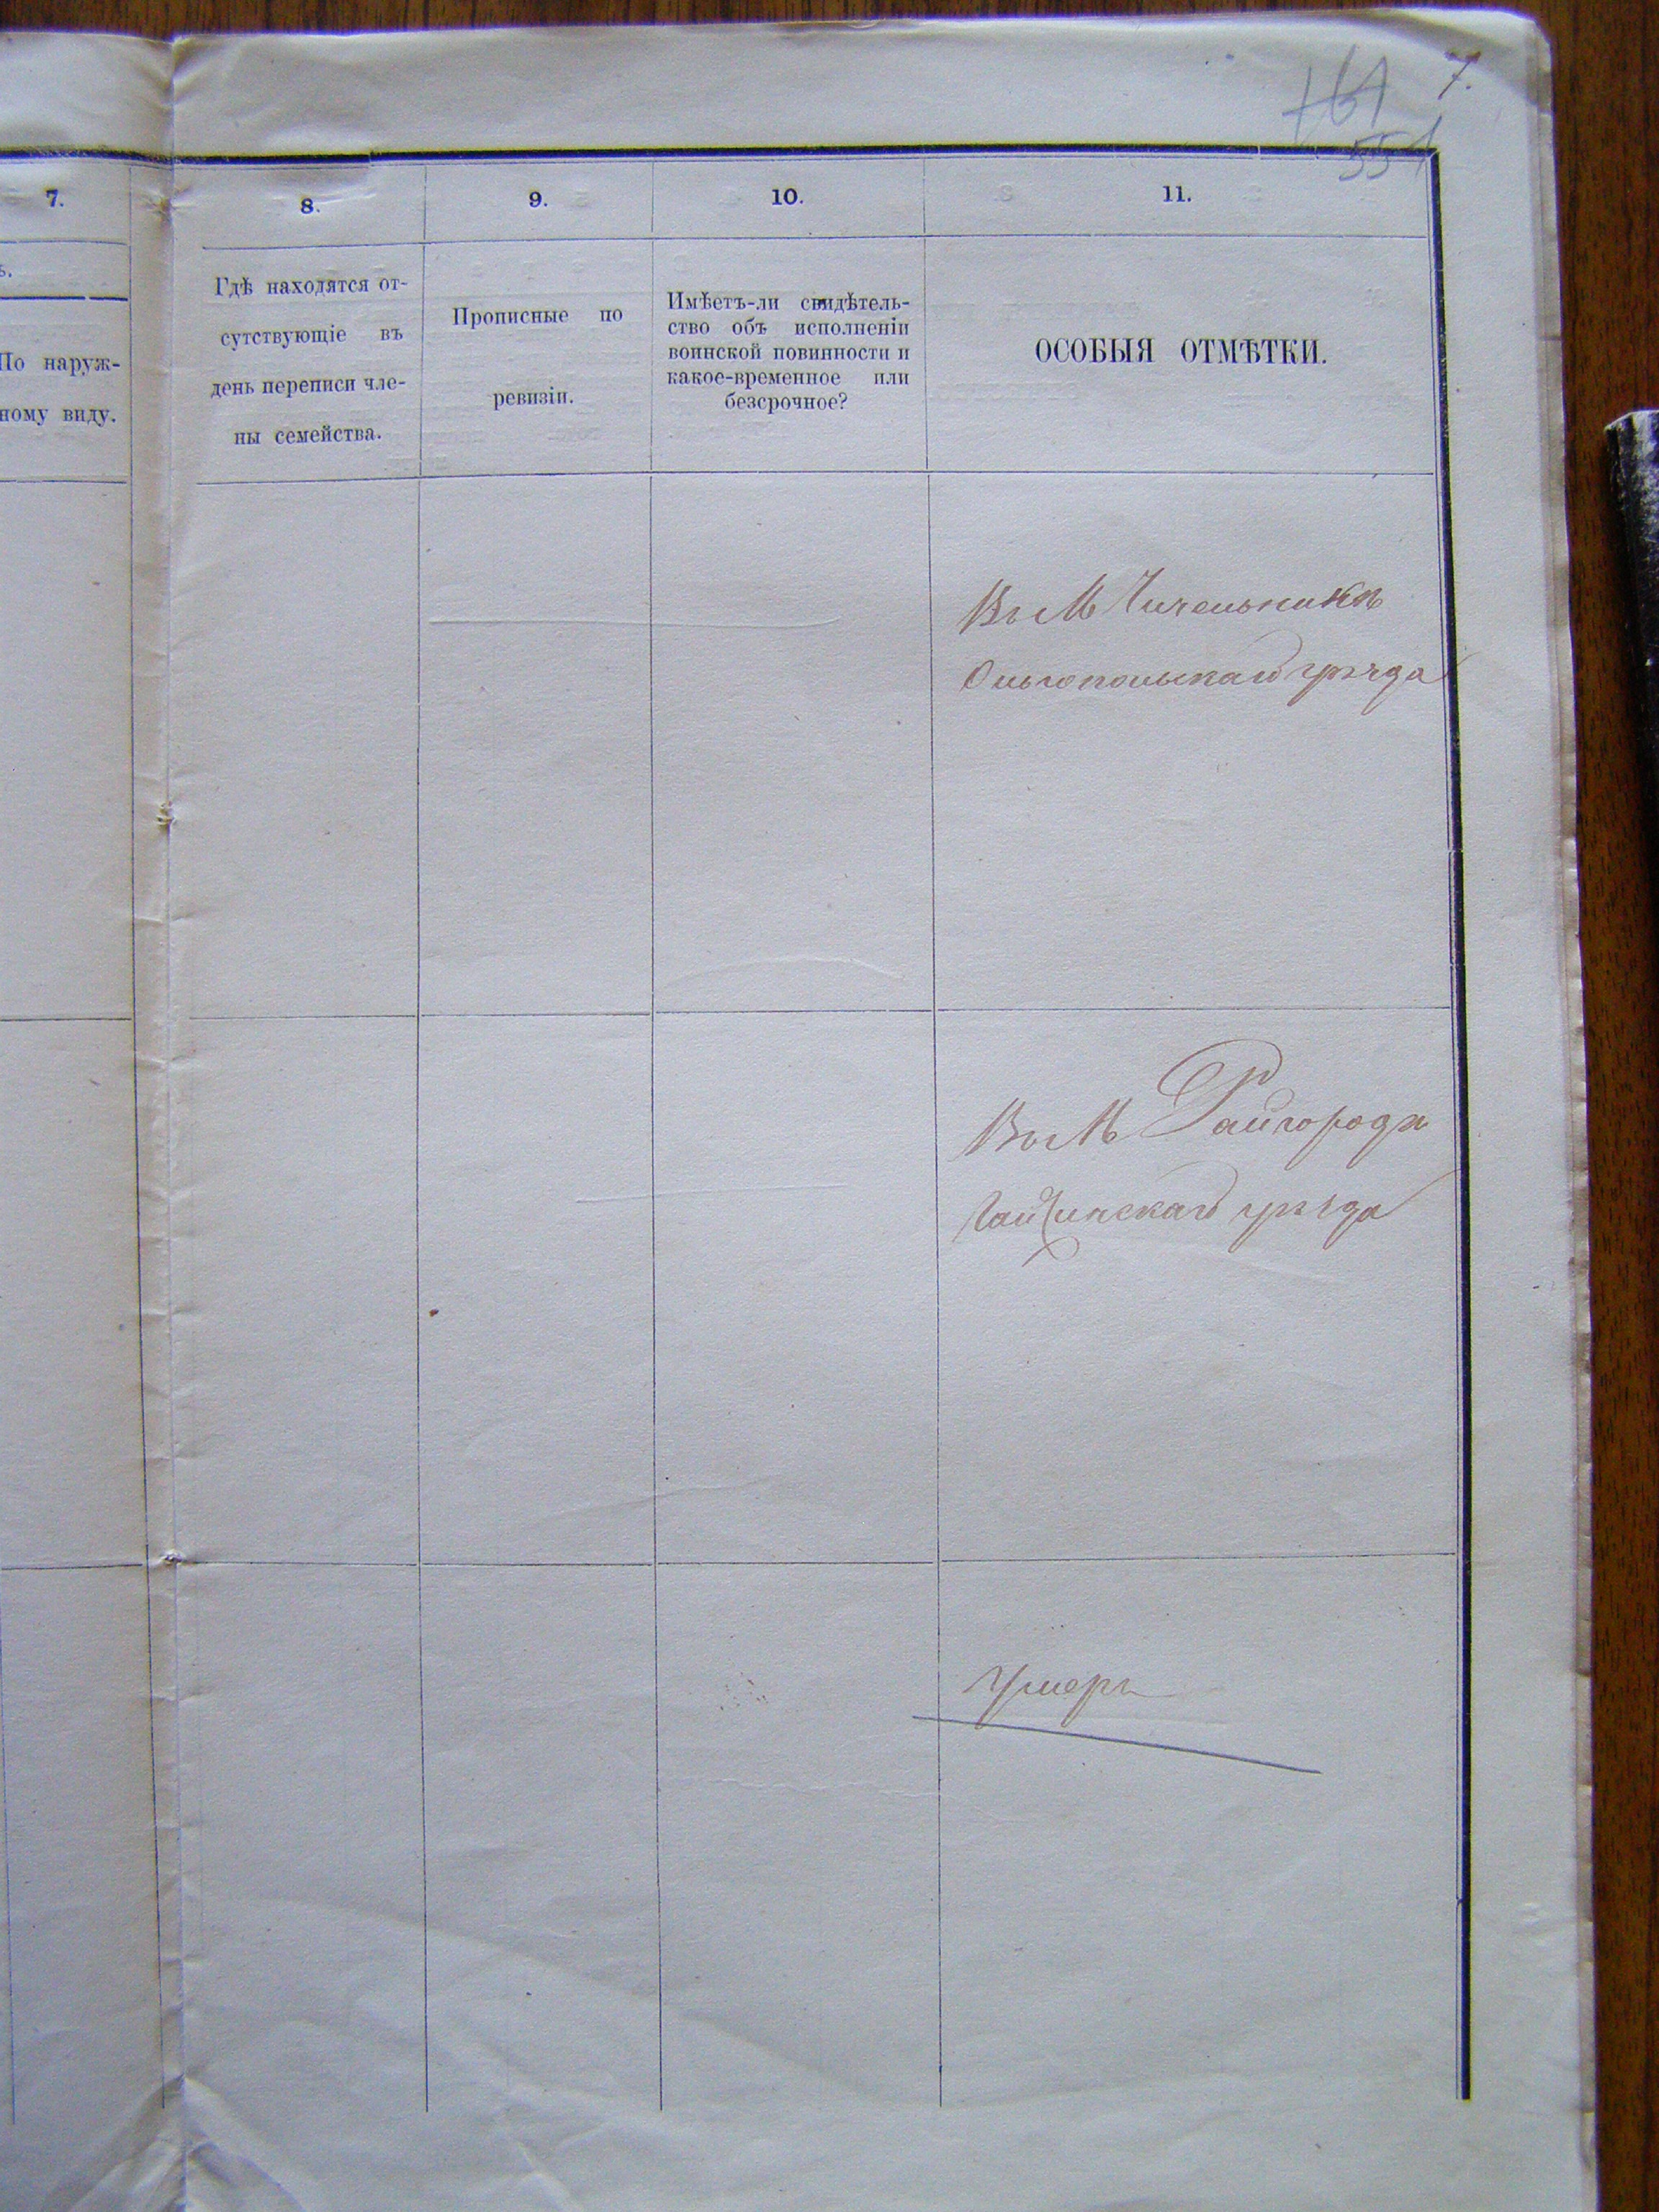 7.
551
7.
8.
9.
10.
11.
ъ.
По наруж-
ному виду.
Гдѣ находятся от-
сутствующіе въ
день переписи чле-
ны семейства.
Прописные по
ревизіи.
Имѣетъ-ли свидѣтель-
ство объ исполненіи
воинской повинности и
какое-временное или
безсрочное?
ОСОБЫЯ ОТМѢТКИ.
Въ М Чичельникѣ
Ольгопольскаго уѣзда
Въ М Райгорода
Гайсинскаго уѣзда
Умеръ